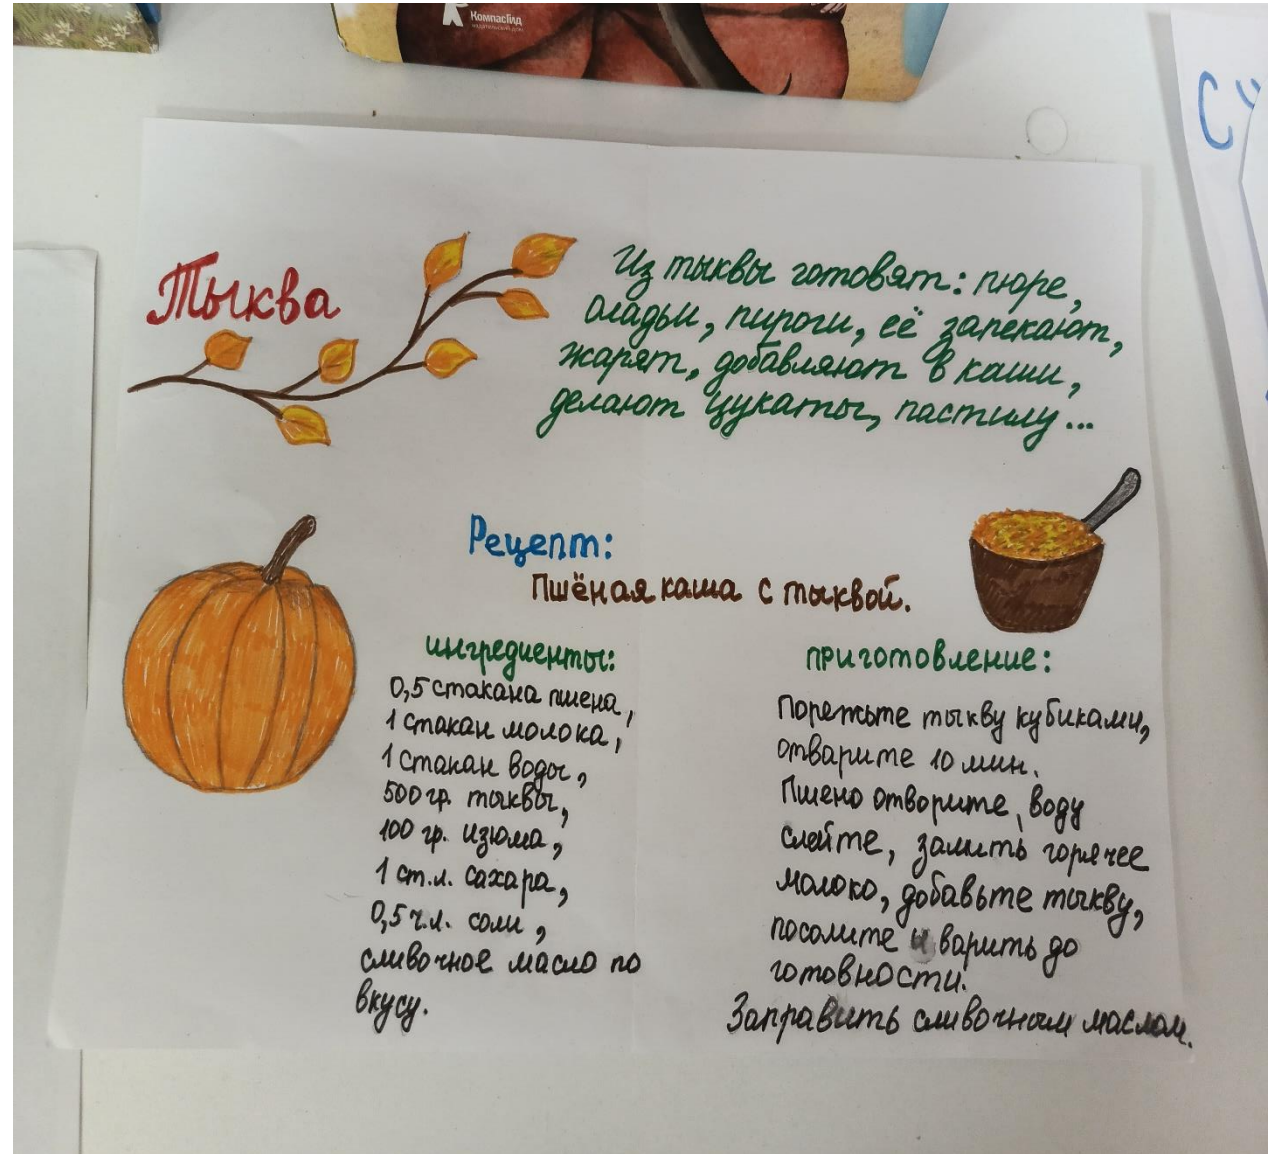 КомпасГид
издательский дом
Су
Тыква
Из тыквы готовят: пюре,
оладьи, пироги, её запекают,
жарят, добавляют в каши,
делают цукаты, пастилу...
Рецепт:
Пшёная каша с тыквой.
ингредиенты:
0,5 стакана пшена,
1 стакан молока,
1 стакан воды,
500 гр. тыквы,
100 гр. изюма,
1 ст.л. сахара,
0,5 ч.л. соли,
сливочное масло по
вкусу.
приготовление:
Порежьте тыкву кубиками,
отварите 10 мин.
Пшено отворите, воду
слейте, залить горячее
молоко, добавьте тыкву,
посолите и варить до
готовности.
Заправить сливочным маслом.